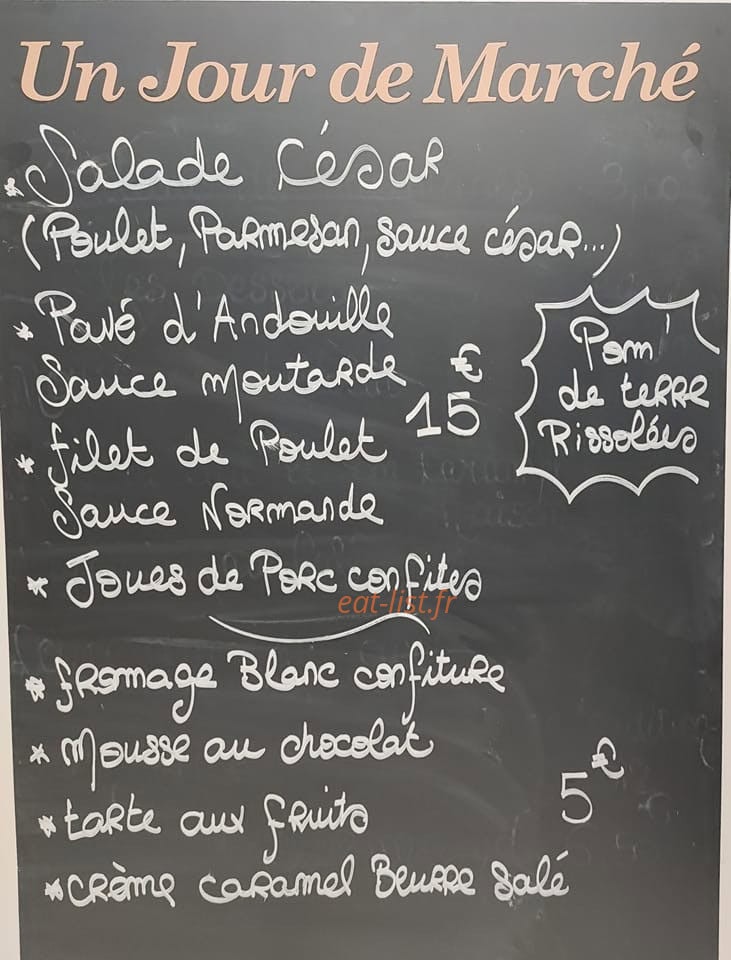 Un Jour de Marché
* Salade César
(Poulet, Parmesan, sauce césar...)
* Pavé d'Andouille
Sauce moutarde
15 €
* filet de Poulet
Sauce Normande
Pom'
de terre
Rissolées
* Joues de Porc confites
eat-list.fr
* fromage Blanc confiture
* Mousse au chocolat
* tarte aux fruits
5 €
* crème caramel Beurre salé